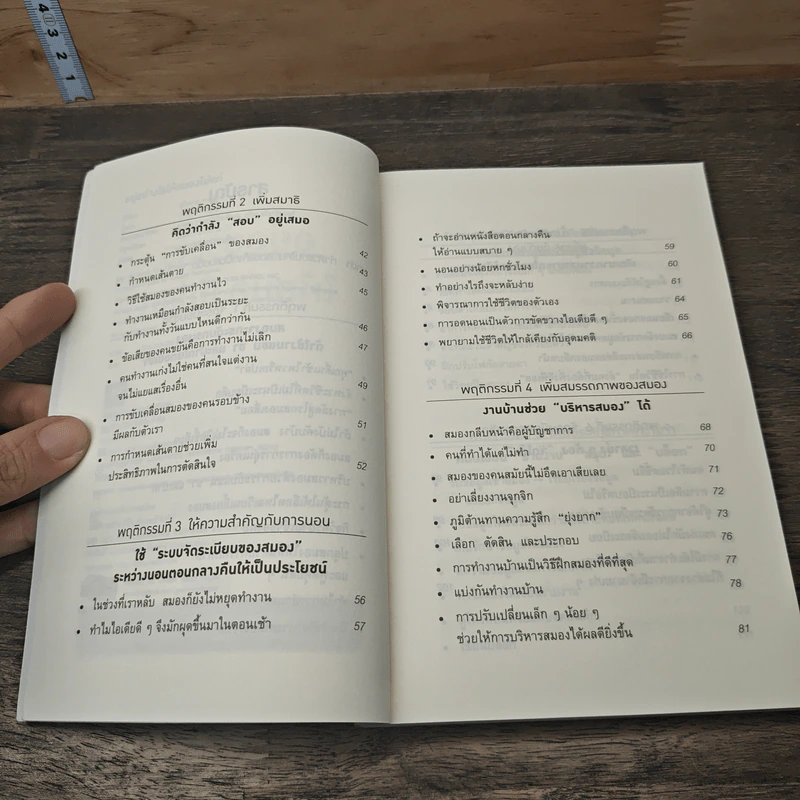 4
3
2
1
พฤติกรรมที่ 2 เพิ่มสมาธิ
คิดว่ากำลัง “สอบ” อยู่เสมอ
• กระตุ้น “การขับเคลื่อน” ของสมอง 42
• กำหนดเส้นตาย 43
• วิธีใช้สมองของคนทำงานไว 45
• ทำงานเหมือนกำลังสอบเป็นระยะ
กับทำงานทั้งวันแบบไหนดีกว่ากัน 46
• ข้อเสียของคนขยันคือการทำงานไม่เลิก 47
• คนทำงานเก่งไม่ใช่คนที่สนใจแต่งาน
จนไม่แยแสเรื่องอื่น 49
• การขับเคลื่อนสมองของคนรอบข้าง
มีผลกับตัวเรา 51
• การกำหนดเส้นตายช่วยเพิ่ม
ประสิทธิภาพในการตัดสินใจ 52
พฤติกรรมที่ 3 ให้ความสำคัญกับการนอน
ใช้ “ระบบจัดระเบียบของสมอง”
ระหว่างนอนตอนกลางคืนให้เป็นประโยชน์
• ในช่วงที่เราหลับ สมองก็ยังไม่หยุดทำงาน 56
• ทำไมไอเดียดี ๆ จึงมักผุดขึ้นมาในตอนเช้า 57
• ถ้าจะอ่านหนังสือตอนกลางคืน
ให้อ่านแบบสบาย ๆ 59
• นอนอย่างน้อยหกชั่วโมง 60
• ทำอย่างไรถึงจะหลับง่าย 61
• พิจารณาการใช้ชีวิตของตัวเอง 64
• การอดนอนเป็นตัวการขัดขวางไอเดียดี ๆ 65
• พยายามใช้ชีวิตให้ใกล้เคียงกับอุดมคติ 66
พฤติกรรมที่ 4 เพิ่มสมรรถภาพของสมอง
งานบ้านช่วย “บริหารสมอง” ได้
• สมองกลีบหน้าคือผู้บัญชาการ 68
• คนที่ทำได้แต่ไม่ทำ 70
• สมองของคนสมัยนี้ไม่อึดเอาเสียเลย 71
• อย่าเลี่ยงงานจุกจิก 72
• ภูมิต้านทานความรู้สึก “ยุ่งยาก” 73
• เลือก ตัดสิน และประกอบ 76
• การทำงานบ้านเป็นวิธีฝึกสมองที่ดีที่สุด 77
• แบ่งกันทำงานบ้าน 78
• การปรับเปลี่ยนเล็ก ๆ น้อย ๆ
ช่วยให้การบริหารสมองได้ผลดียิ่งขึ้น 81